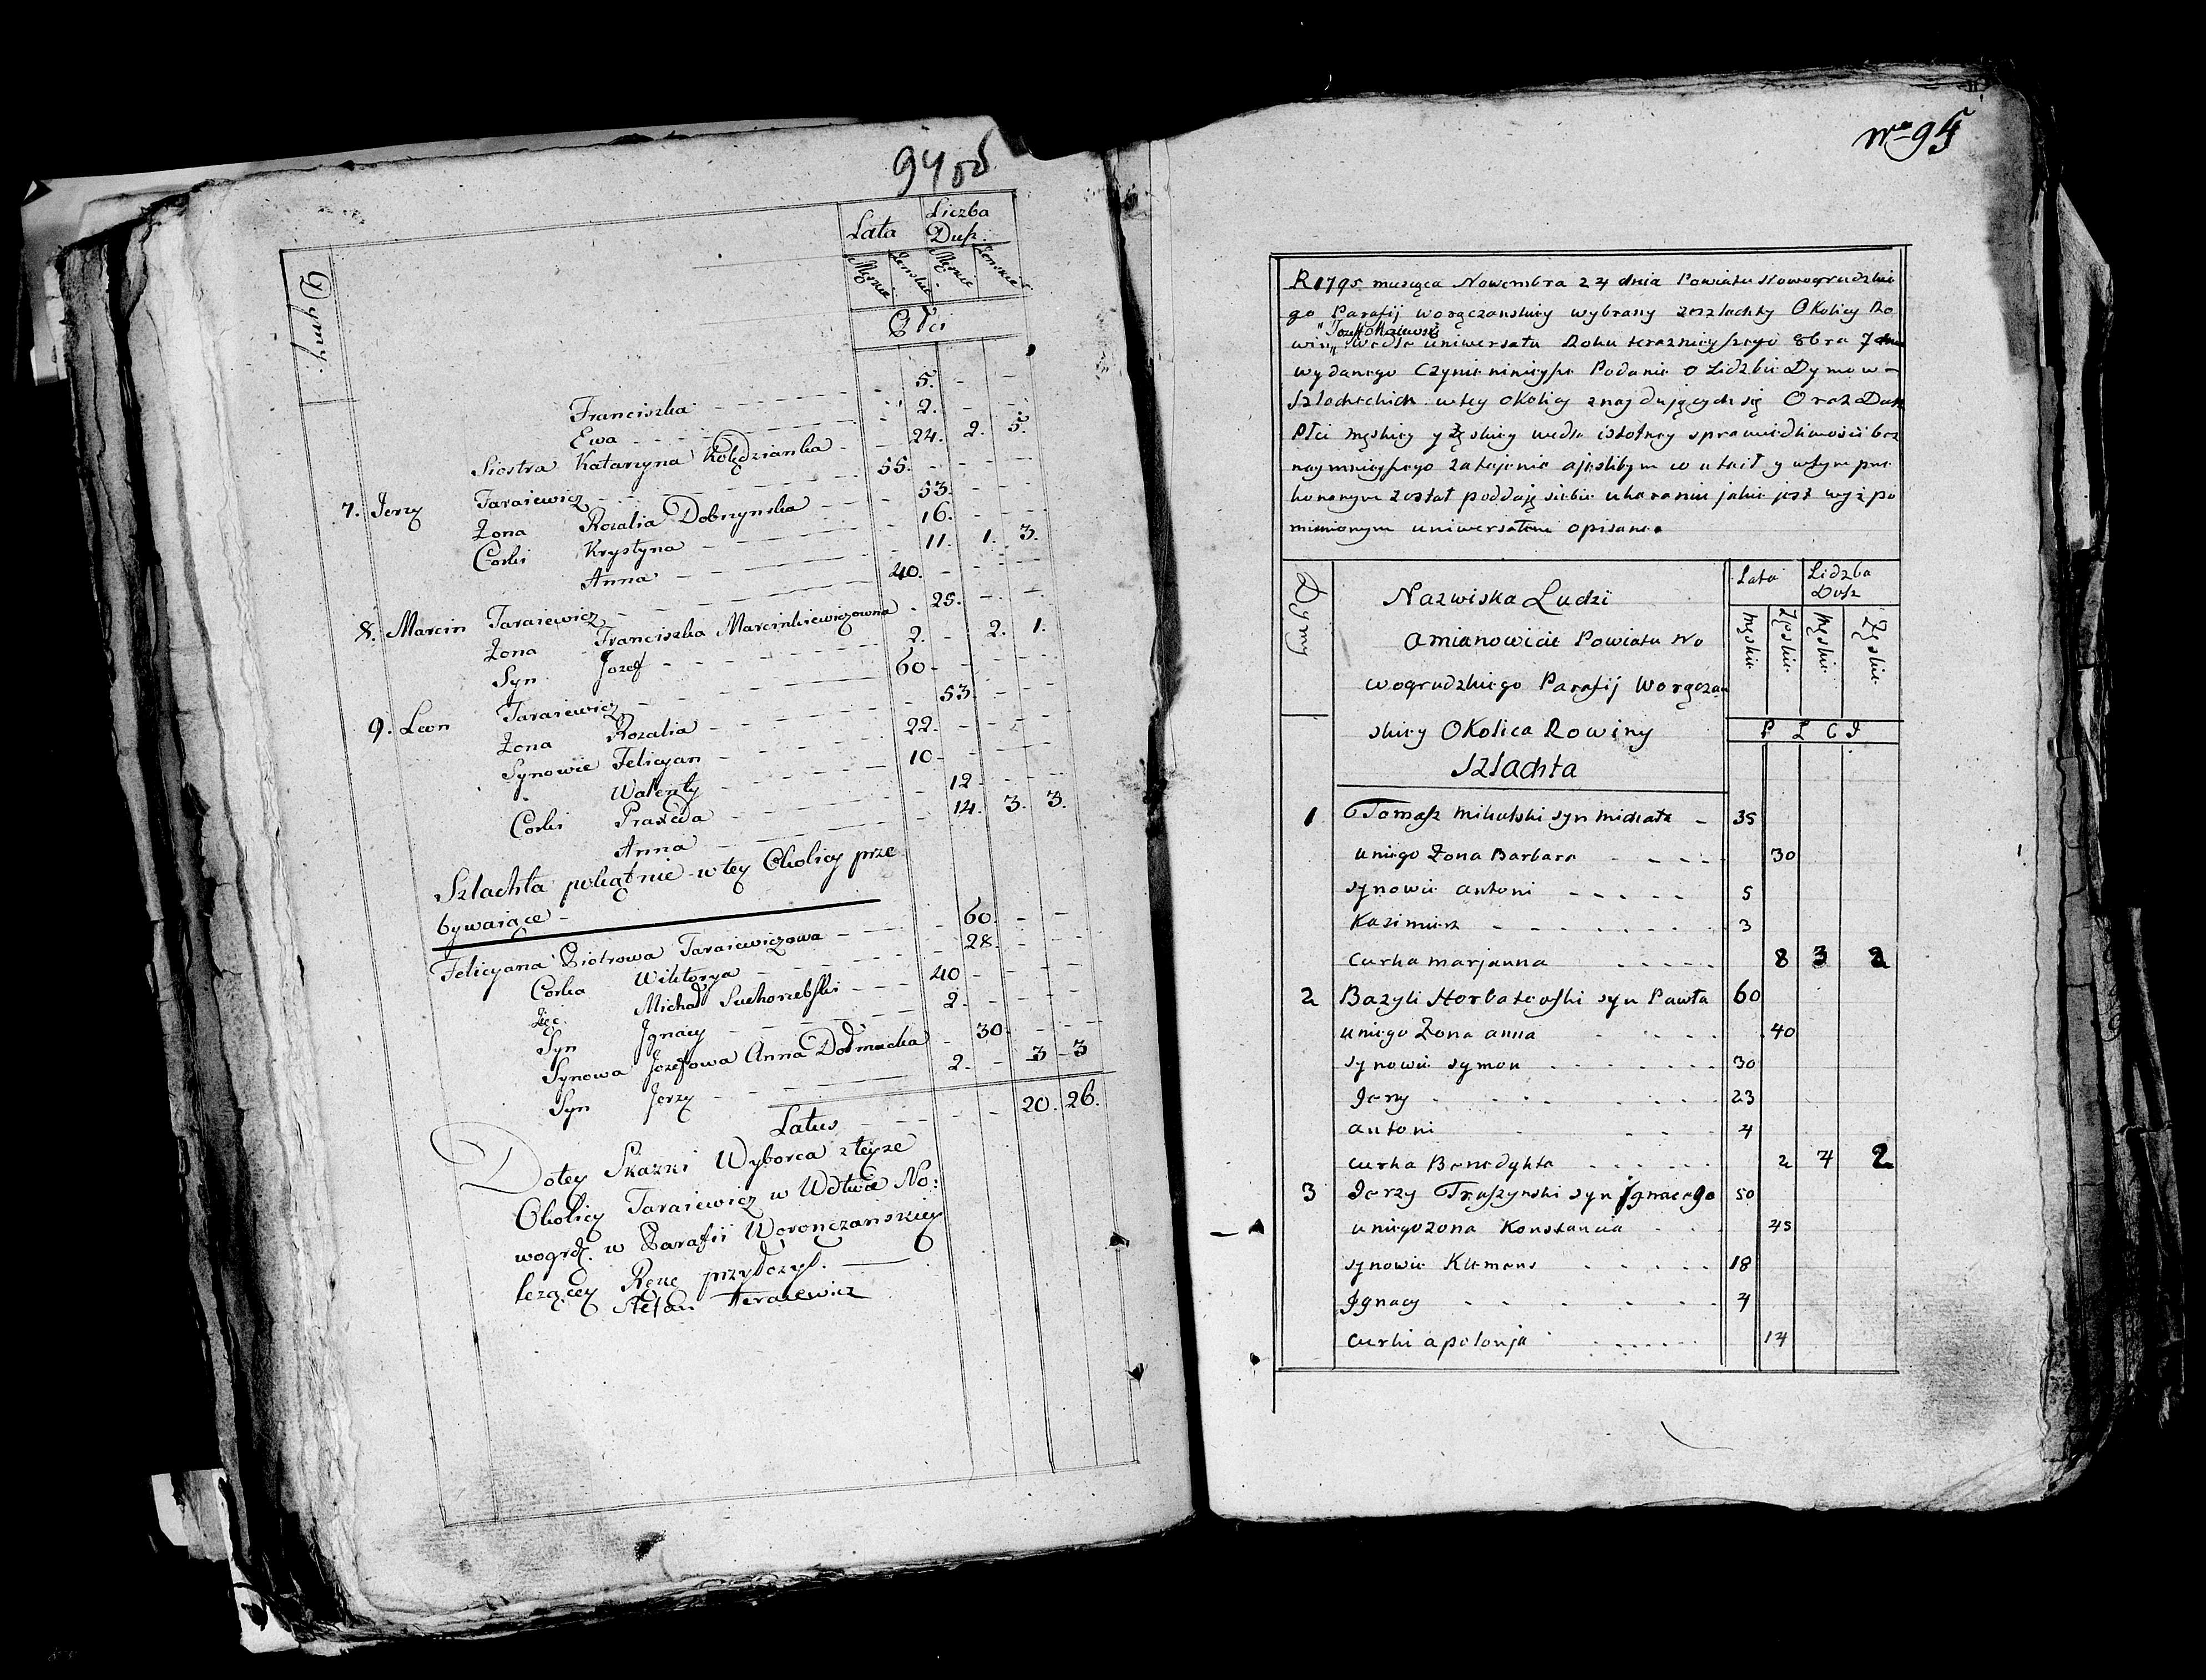 94 об
Dymy.
Lata
Liczba Dusz.
Męskie
Żenskie
Męskie
Żenskie
Płci
Franciszka - - 5. - -
Ewa - - 2. - -
Siostra Katarzyna Kolędzianka - 24. 2. 5.
7. Jerzy Taraiewicz - 55. - - -
Żona Rozalia Dobrzynska - - 53. - -
Corki Krystyna - - 16. - -
Anna - - 11. 1. 3.
8. Marcin Taraiewicz - 40. - - -
Żona Franciszka Marcinkiewiczowna - 25. - -
Syn Jozef - 2. - 2. 1.
9. Leon Taraiewicz - 60 - - -
Żona Rozalia - - 53. - -
Synowie Felicyan - 22. - - -
Walenty - 10 - - -
Corki Praxeda - - 12. - -
Anna - - 14. 3. 3.
Szlachta pokątnie w tey Okolicy prze
bywaiące -
Felicyana Piotrowa Taraiewiczowa - - 60. - -
Corka Wiktorya - - 28. - -
Zięc Michał - 40 - - -
Syn Jgnacy - 2. - - -
Synowa Jozefowa Anna - 30 - -
Syn Jerzy - 2. - 3 - 3
Latus - - - 20. 26.
Do tey Skazki Wyborca z teyze
Okolicy Taraiewicz w Pdtwie No:
wogrd. w Parafii Woronczanskiey
leżącey Rękę przydczył. —
Stefan Terasewicz
No 95
R 1795 miesiąca Nowembra 24 dnia Powiatu Nowogrudzkie
go Parafij worączanskiey wybrany zeszlachty OKolicy Ro
"Jozeff
win„ wedle uniwersału Roku teraznieyszego 8bra 7 dnia
wydanego Czynie ninieysze Podanie o Lidzbie Dymow -
szlacheckich wtey okolicy znajdujących się Oraz Dusz
Płci męskiey y żęskiey wedle istotney sprawiedliwości bez
naymnieyszego zatajenia a jeslibym co utaił y wtym prze
konanym został poddaję siebie ukaraniu jakie jest wyż po
mienionym uniwersałem opisane.
Dymy
Nazwiska Ludzi
amianowicie Powiatu No
wogrudzkiego Parafij Worączan
skiey OKolica Rowiny
Szlachta
Lata
Lidzba Dusz
Męskie
Żęskie
Męskie
Żęskie
P Ł C I
1 Tomasz Mikulski syn Michała - 35
uniego Żona Barbara - - - - 30
synowie antoni - - - - - 5
Kazimierz - - - - - - - 3
curka marjanna - - - - - 8 3 2
2 Bazyli Horbaczewski syn Pawła 60
uniego Żona anna - - - 40
synowie symon - - - - - 30
Jerzy - - - - - - 23
antoni - - - - 4
curka Benedykta - - - - - 2 4 2
3 Jerzy Traszynski syn Jgnacego 50
uniego zona Konstancia - - 45
synowie Klemens - - - - - 18
Jgnacy - - - - - - 4
curki apolonja - - - - - 14